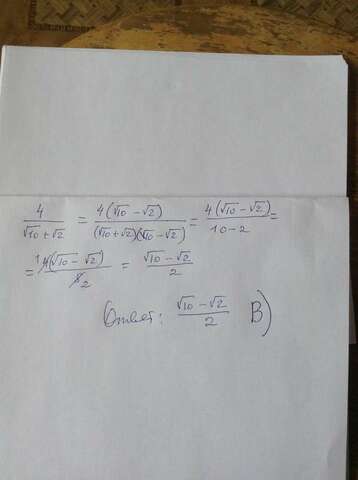 4/(√10+√2) = 4(√10-√2)/((√10+√2)(√10-√2)) = 4(√10-√2)/(10-2) =
= ¹4(√10-√2)/8₂ = (√10-√2)/2
Ответ: (√10-√2)/2 В)